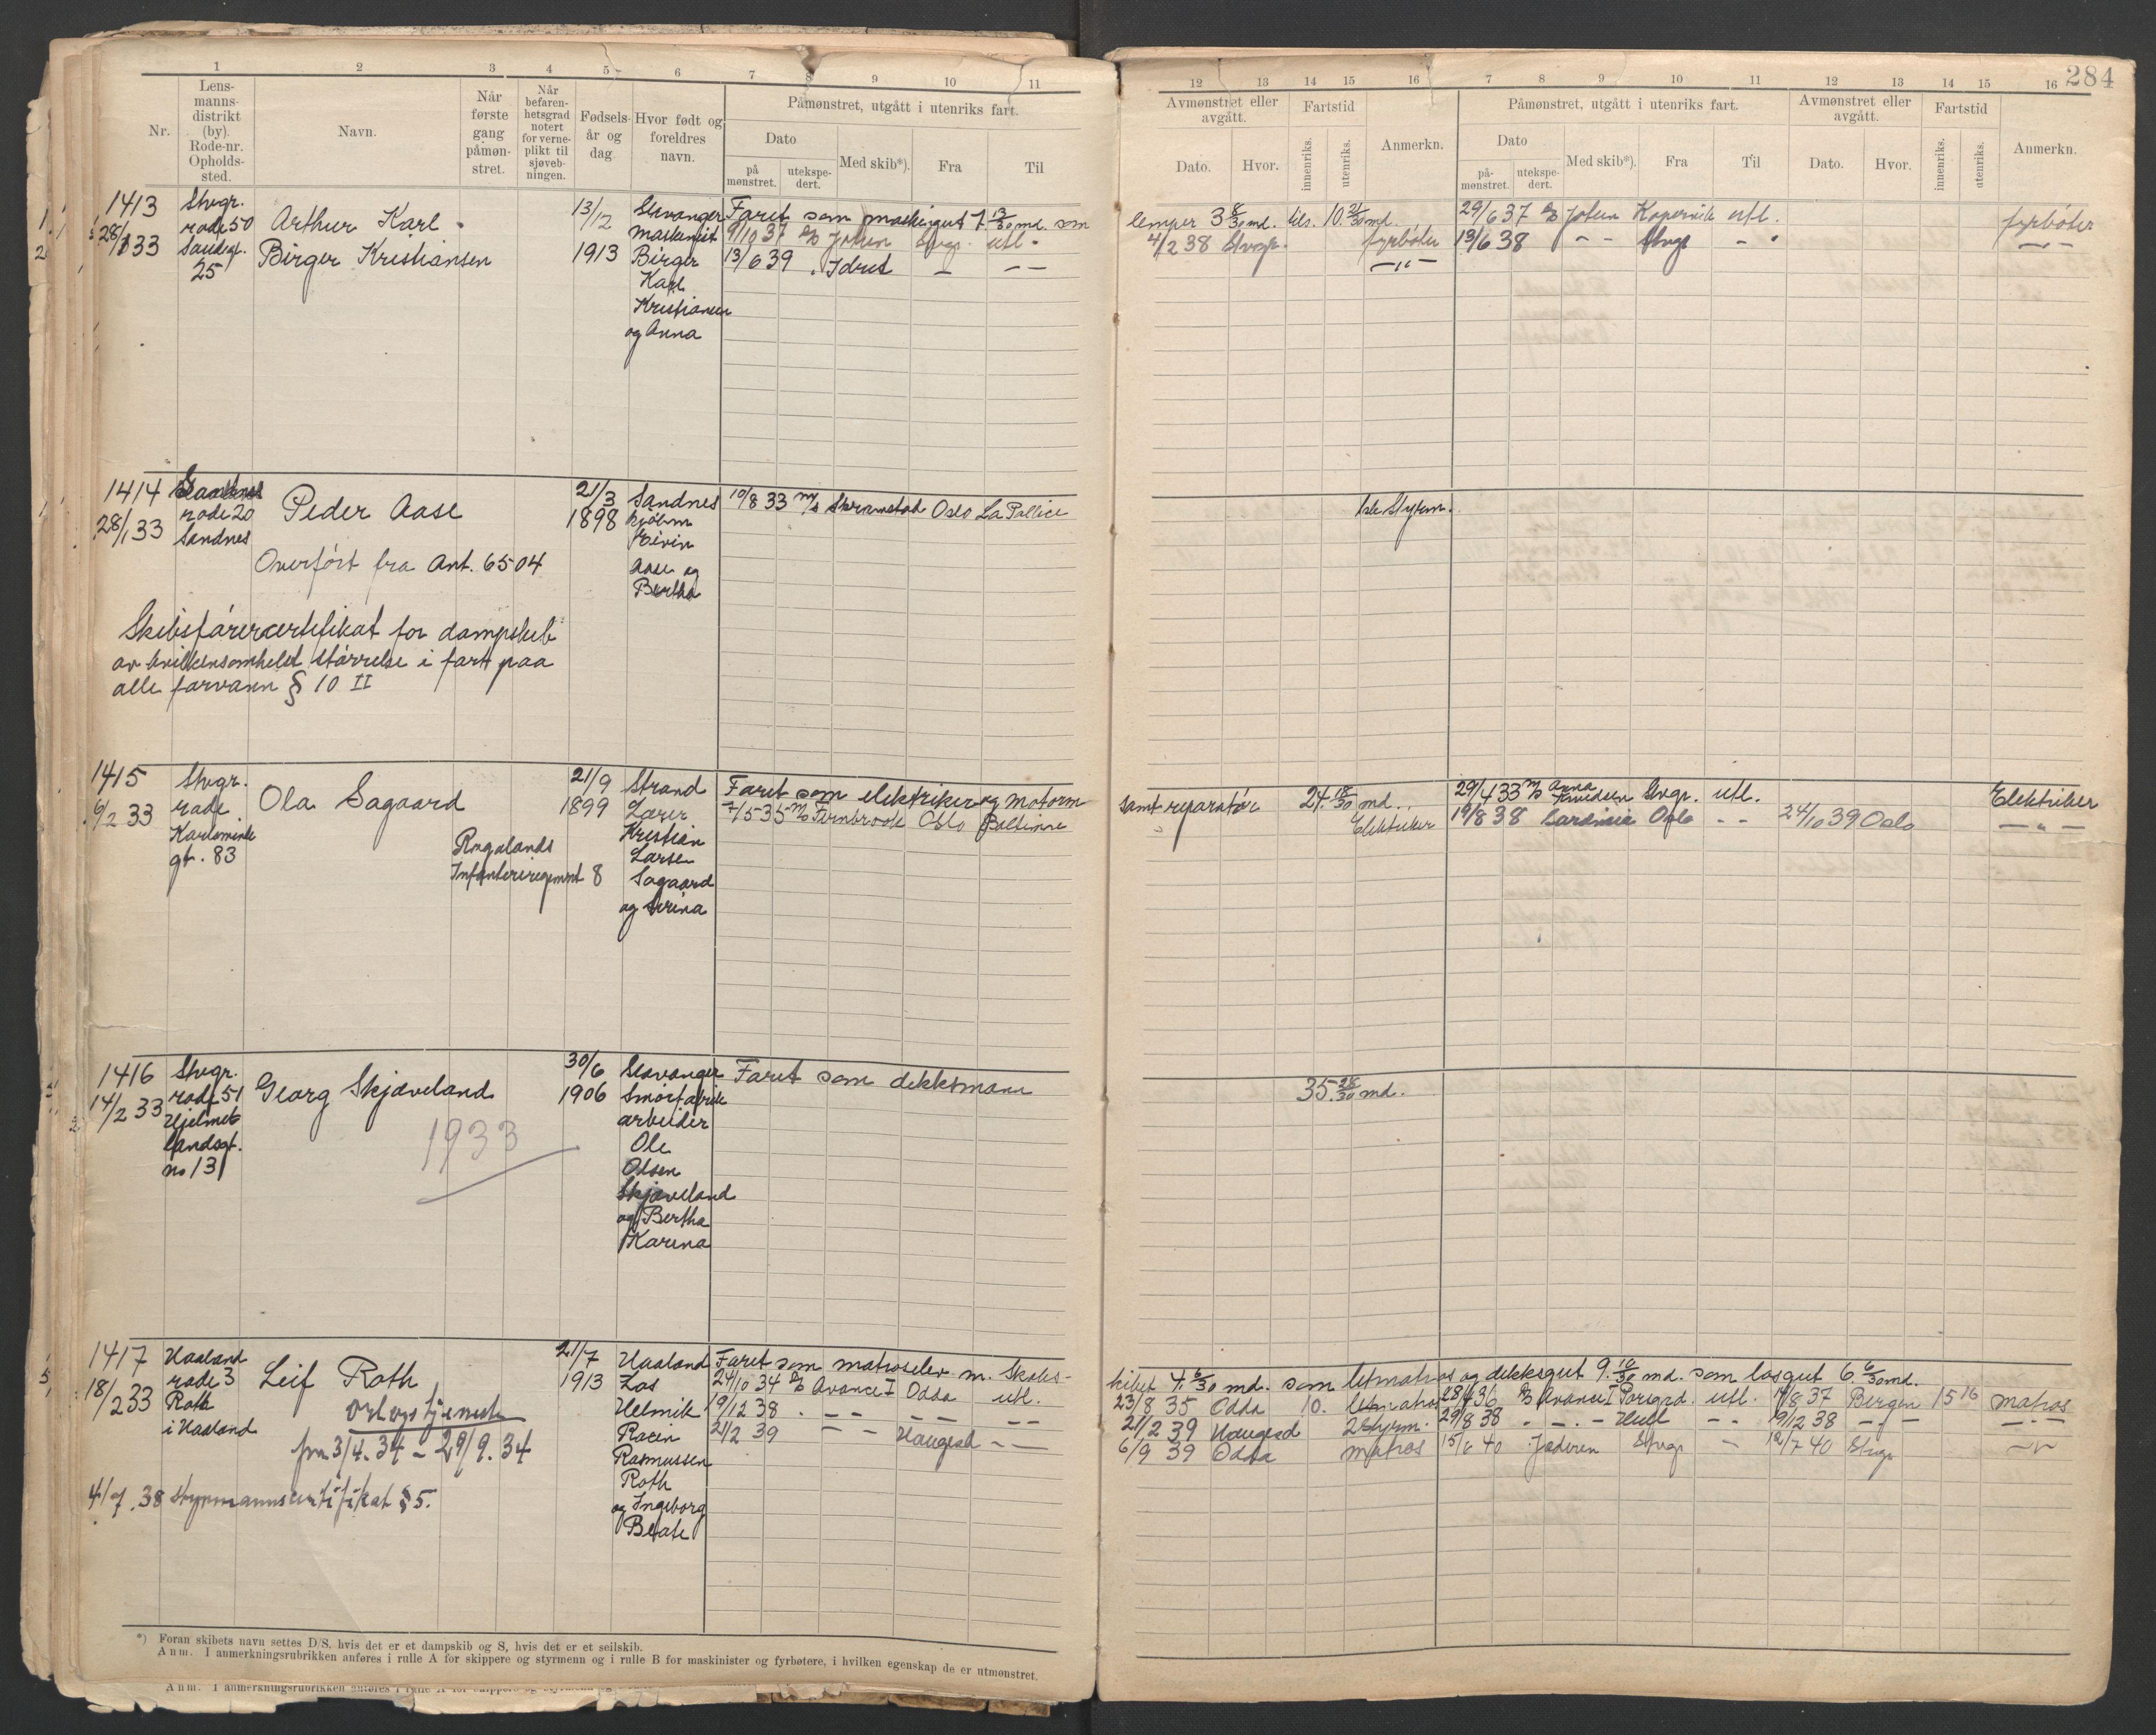 1 2 3 4 5 6 7 8 9 10 11
Nr.
Lens-
manns-
distrikt
(by).
Rode-nr.
Opholds-
sted.
Navn.
Når
første
gang
påmøn-
stret.
Når
befaren-
hetsgrad
notert
for verne-
plikt til
sjøveb-
ningen.
Fødsels-
år og
dag
Hvor født og
foreldres
navn.
Påmønstret, utgått i utenriks fart.
Dato
på
mønstret.
utekspe-
dert.
Med skib*).
Fra
Til
12 13 14 15 16 7 8 9 10 11 12 13 14 15 16
284
Avmønstret eller
avgått.
Dato.
Hvor.
Fartstid
innenriks.
utenriks.
Anmerkn.
Påmønstret, utgått i utenriks fart.
Dato
på-
mønstret.
utekspe-
dert.
Med skib*).
Fra
Til
Avmønstret eller
avgått.
Dato.
Hvor.
Fartstid
innenriks.
utenriks.
Anmerkn.
1413
28/1 33
Stvgr.
rode 50
25
Arthur Karl
Birger Kristiansen
13/12
1913
Stavanger
maskinist
Birger
Karl
Kristiansen
og Anna
Faret som maskingut 7 13/30 md. som
lemper 3 8/30 md. tils. 10. 21/30 md.
9/10 37 D/S Johan Stvgr. utl.
13/6 39 Idret — — —
4/2 38 Stvgr. fyrbøter
— " —
29/6 37 D/S Johan Kopervik utl. fyrbøter
13/6 38 — — Stvgr — " — " —
1414
28/1 33
Sandnes
rode 20
Sandnes
Peder Aase
Overført fra Ant. 6504
21/3
1898
Sandnes
Eivin
Aase og
Bertha
10/8 33 M/S Skramstad Oslo La Pallice
1ste Styrm.
Skibsførercertifikat for dampskib
av hvilkensomhelst størrelse i fart paa
alle farvann § 10 II
1415
6/2 33
Stvgr.
rode
gt. 83
Ola Sagaard
Rogalands
Infanteriregiment 8
21/9
1899
Strand
Lærer
Kristian
Larsen
Sagaard
og Serina
Faret som elektriker og motorm
samt reparatør 24. 18/30 md.
7/5 35 M/S Fernbrook Oslo Baltimore
Elektriker
29/4 33 M/S Anna Knudsen Stvgr. utl. Elektriker
19/8 38 Sardinia Oslo — — 24/10 39 Oslo — " —
1416
14/2 33
Stvgr.
rode 51
Hjelme-
landsgt.
no 13
Georg Skjæveland
1933
30/6
1906
Stavanger
Smørfabrik
arbeider
Ole
Olsen
Skjæveland
og Bertha
Karina
Faret som dekksmann
35. 28/30 md.
1417
18/2 33
Haaland
rode 3
Roth
i Haaland
Leif Roth
Orlogstjeneste
fra 3/4. 34 – 29/9. 34
4/7. 38 Styrmannscertifikat § 5.
21/7
1913
Haaland
Las
Helmik
Racin
Rasmussen
Roth
og Ingeborg
Beate
Faret som matroselev m. Skoles-
skibet 4. 6/30 md. som letmatros og dekksgut 9. 10/30 md. som losgut 6. 6/30 md.
24/10 34 D/S Avance I Odda utl.
19/12 38 . — — — — — —
21/2 39 — — Haugesd — —
23/8 35 Odda 10. letmatros
21/2 39 Haugesd 2 Styrm.
6/9 39 Odda matros
28/6 36 D/S Avance I Porsgrd. utl. 14/8 37 Bergen 15 16 matros
29/8 38 . — . — Hull — — 19/12 38 — . — — " —
15/6 40 Jæderen Stvgr — 12/7 40 Stvgr — " —
*) Foran skibets navn settes D/S. hvis det er et dampskib og S, hvis det er et seilskib.
Anm. I anmerkningsrubrikken anføres i rulle A for skippere og styrmenn og i rulle B for maskinister og fyrbøtere, i hvilken egenskap de er utmønstret.